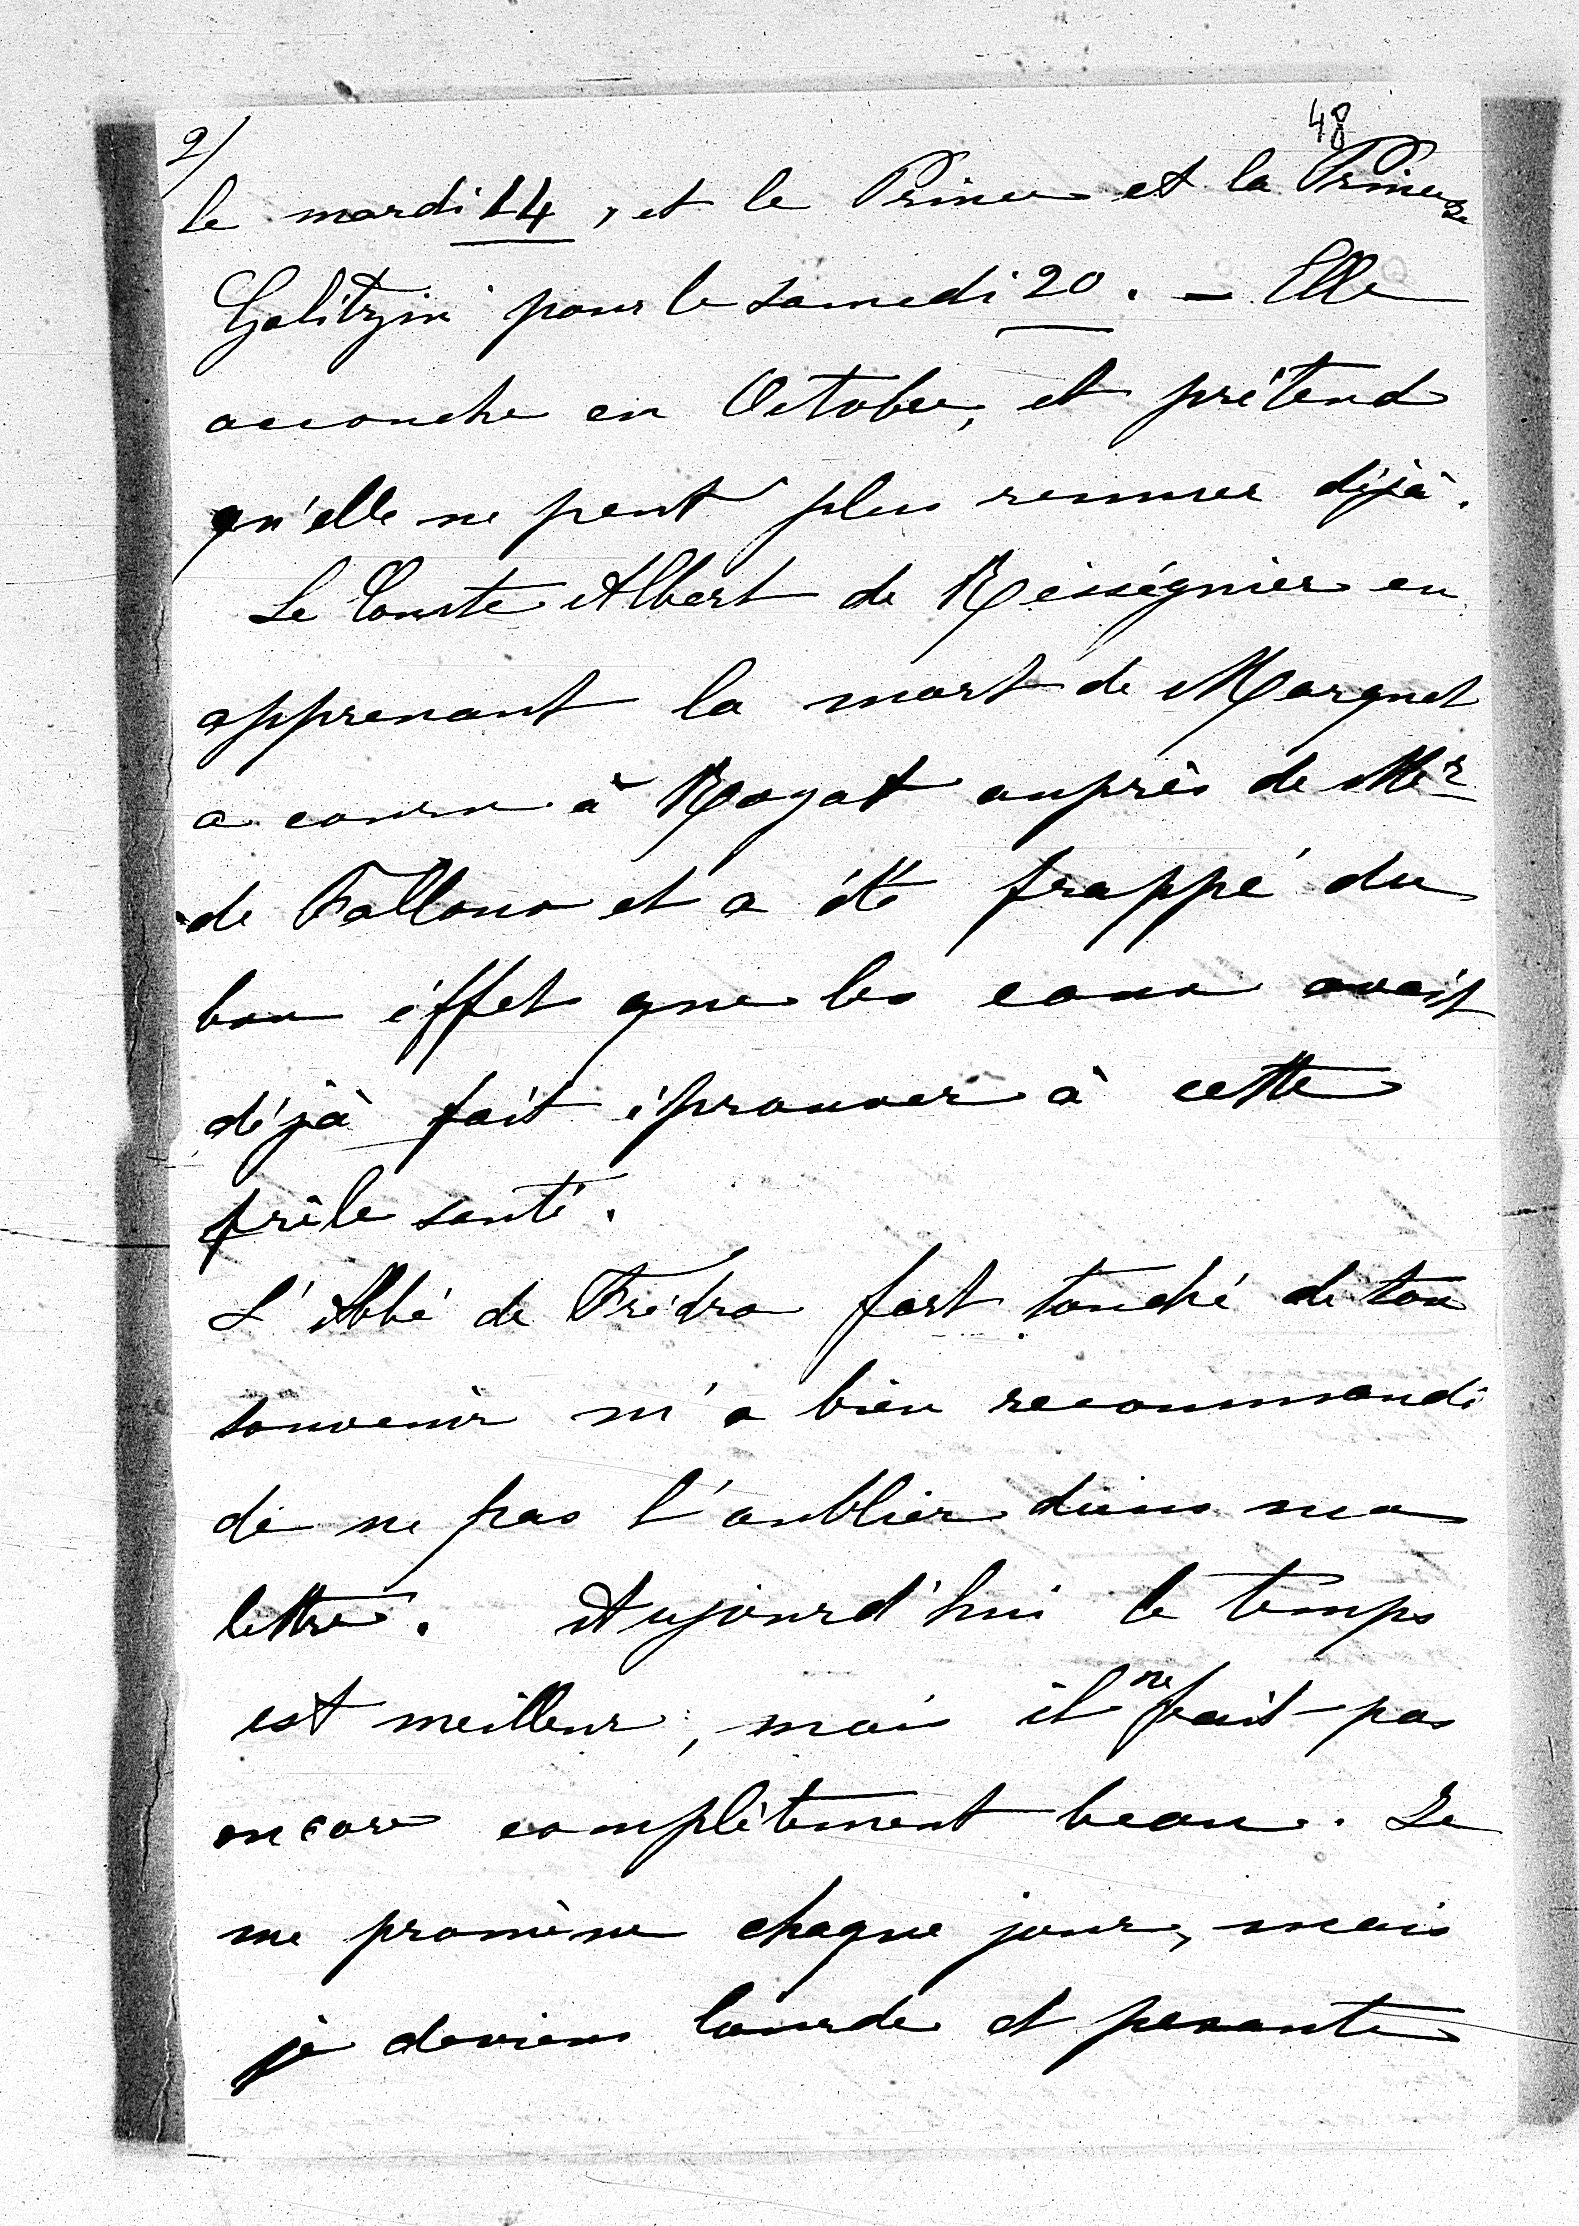 48
2/
le mardi 14, et le Prince et la Princesse
Galitzin pour le samedi 20. – Elle
accouche en Octobre, et prétend
qu'elle ne peut plus remuer déjà.
Le Comte Albert de Rességuier en
apprenant la mort de Marguet
a couru à Royat auprès de Mr
de Falloux et a été frappé du
bon effet que les eaux avait
déjà fait éprouver à cette
frêle santé.
L'Abbé de Frédro fort touché de ton
souvenir m'a bien recommandé
de ne pas l'oublier dans ma
lettre. Aujourd'hui le temps
est meilleur, mais il ne fait pas
encore complètement beau. Je
me promène chaque jour, mais
je deviens lourde et pesante